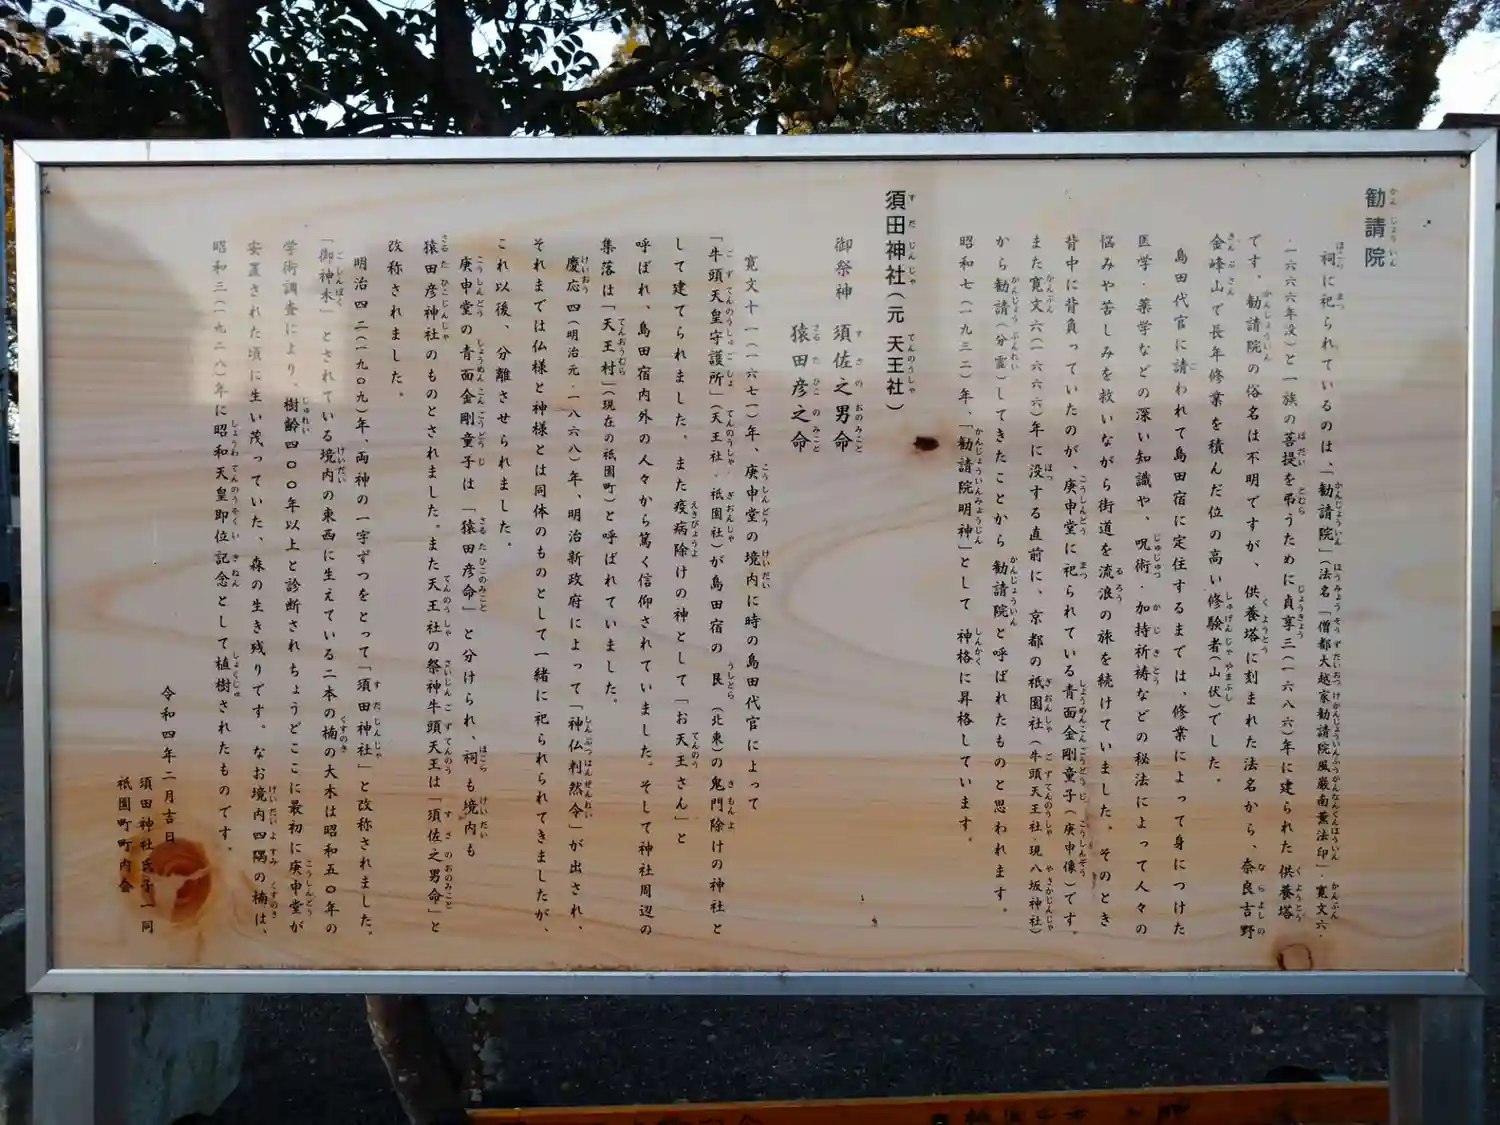 勧請院
祠に祀られているのは、「勧請院」(法名「僧都大越家勧請院風巌南薫法印」・寛文六・
一六六六年没)と一族の菩提を弔うために貞享三(一六八六)年に建られた供養塔
です。勧請院の俗名は不明ですが、供養塔に刻まれた法名から、奈良吉野
金峰山で長年修業を積んだ位の高い修験者(山伏)でした。
島田代官に請われて島田宿に定住するまでは、修業によって身につけた
医学・薬学などの深い知識や、呪術・加持祈祷などの秘法によって人々の
悩みや苦しみを救いながら街道を流浪の旅を続けていました。そのとき
背中に背負っていたのが、庚申堂に祀られている青面金剛童子(庚申像)です。
また寛文六(一六六六)年に没する直前に、京都の祇園社(牛頭天王社現八坂神社)
から勧請(分霊)してきたことから勧請院と呼ばれたものと思われます。
昭和七(一九三二)年、「勧請院明神」として神格に昇格しています。
須田神社(元 天王社)
御祭神 須佐之男命
猿田彦之命
寛文十一(一六七一)年、庚申堂の境内に時の島田代官によって
「牛頭天皇守護所」(天王社・祇園社)が島田宿の艮(北東)の鬼門除けの神社と
して建てられました。また疫病除けの神として「お天王さん」と
呼ばれ、島田宿内外の人々から篤く信仰されていました。そして神社周辺の
集落は「天王村」(現在の祇園町)と呼ばれていました。
慶応四(明治元・一八六八)年、明治新政府によって「神仏判然令」が出され、
それまでは仏様と神様とは同体のものとして一緒に祀られられてきましたが、
これ以後、分離させられました。
庚申堂の青面金剛童子は「猿田彦命」と分けられ、祠も境内も
猿田彦神社のものとされました。また天王社の祭神牛頭天王は「須佐之男命」と
改称されました。
明治四二(一九〇九)年、両神の一字ずつをとって「須田神社」と改称されました。
「御神木」とされている境内の東西に生えている二本の楠の大木は昭和五〇年の
学術調査により、樹齢四〇〇年以上と診断されちょうどここに最初に庚申堂が
安置された頃に生い茂っていた、森の生き残りです。なお境内四隅の楠は、
昭和三(一九二八)年に昭和天皇即位記念として植樹されたものです。
令和四年二月吉日
須田神社氏子一同
祇園町町内会